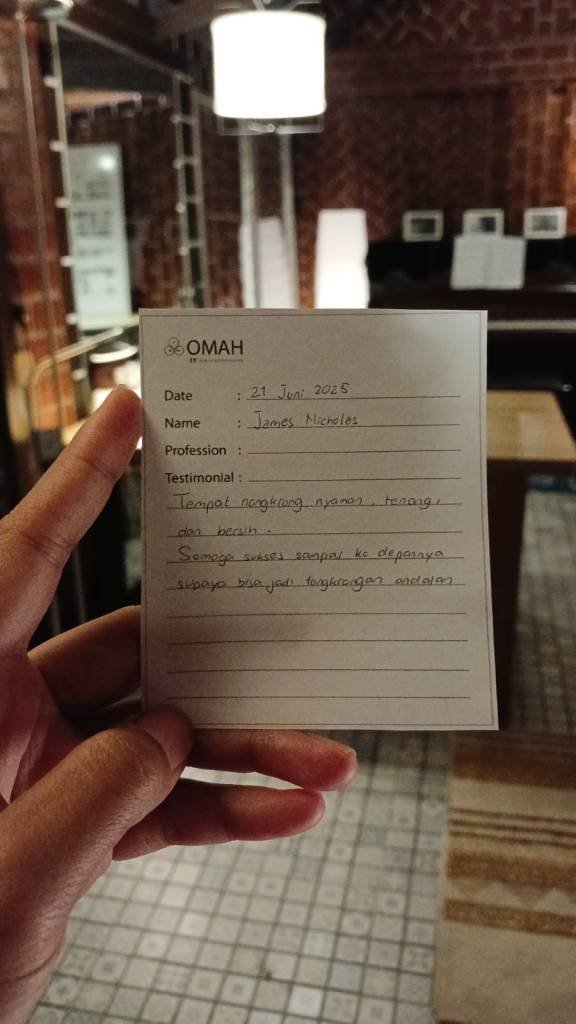 OMAH
Date : 21 Juni 2025
Name : James Nicholas
Profession :
Testimonial :
Tempat nongkrong nyaman, tenang,
dan bersih.
Semoga sukses sampai ke depannya
supaya bisa jadi tongkrongan andalan